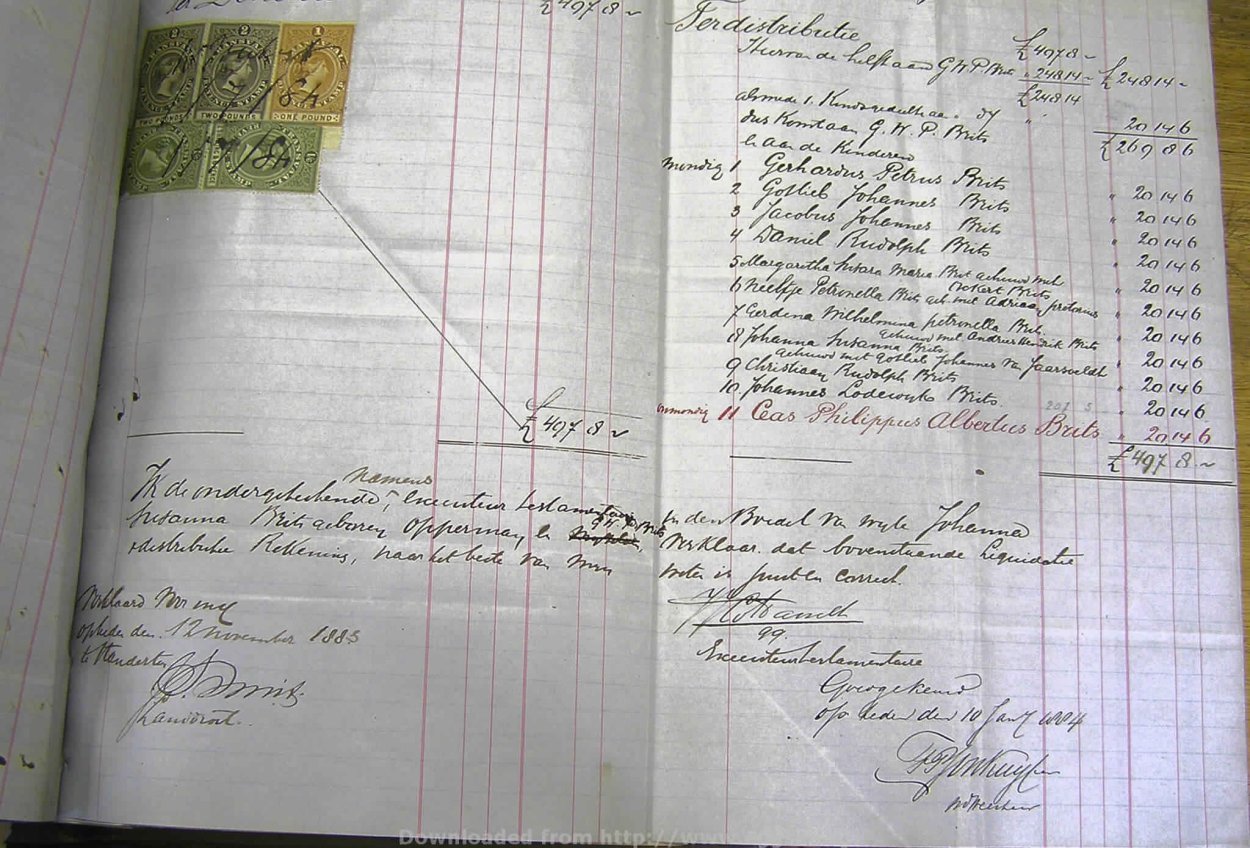 £497 8 ~
2
2
1
TWO POUNDS
TWO POUNDS
ONE POUND
£497 8 ~
Ter distributie £497 8 ~
Hiervan de helft aan G H P Brits " 248 14 ~ £248 14 ~
£248 14
alsmede 1 Kindsgedeelte " 20 14 6
dus Komt aan G. H. P. Brits £269 8 6
En aan de Kinderen
mondig 1 Gerhardus Petrus Brits " 20 14 6
2 Gotlieb Johannes Brits " 20 14 6
3 Jacobus Johannes Brits " 20 14 6
4 Daniel Rudolph Brits " 20 14 6
5 Margaretha Susara Maria Brits gehuwd met
Brits " 20 14 6
6 Neeltje Petronella Brits geh. met Adriaan pretorius " 20 14 6
7 Gerdina Wilhelmina petronella Brits
gehuwd met Andries Hendrik Brits " 20 14 6
8 Johanna Susanna Brits
gehuwd met Gotlieb Johannes Van Jaarsveldt " 20 14 6
9 Christiaan Rudolph Brits " 20 14 6
10 Johannes Lodewyk Brits " 20 14 6
onmondig 11 Ceas Philippus Albertus Brits " 20 14 6
£497 8 ~
namens
Ik de ondergetekende, Executeur testamentair in den Boedel van wyle Johanna
G. H. P. Brits
Susanna Brits geboren Opperman, En Verklaar dat bovenstaande Liquidatie
& distributie Rekening, naar het beste van myn weten is juist en correct.
qq.
Executeur testamentaire
Verklaard voor my
op heden den 12 November 1883
te Standerton
Landdrost.
Goedgekeurd
op heden den 10 Jany 1884
Downloaded from http://www.